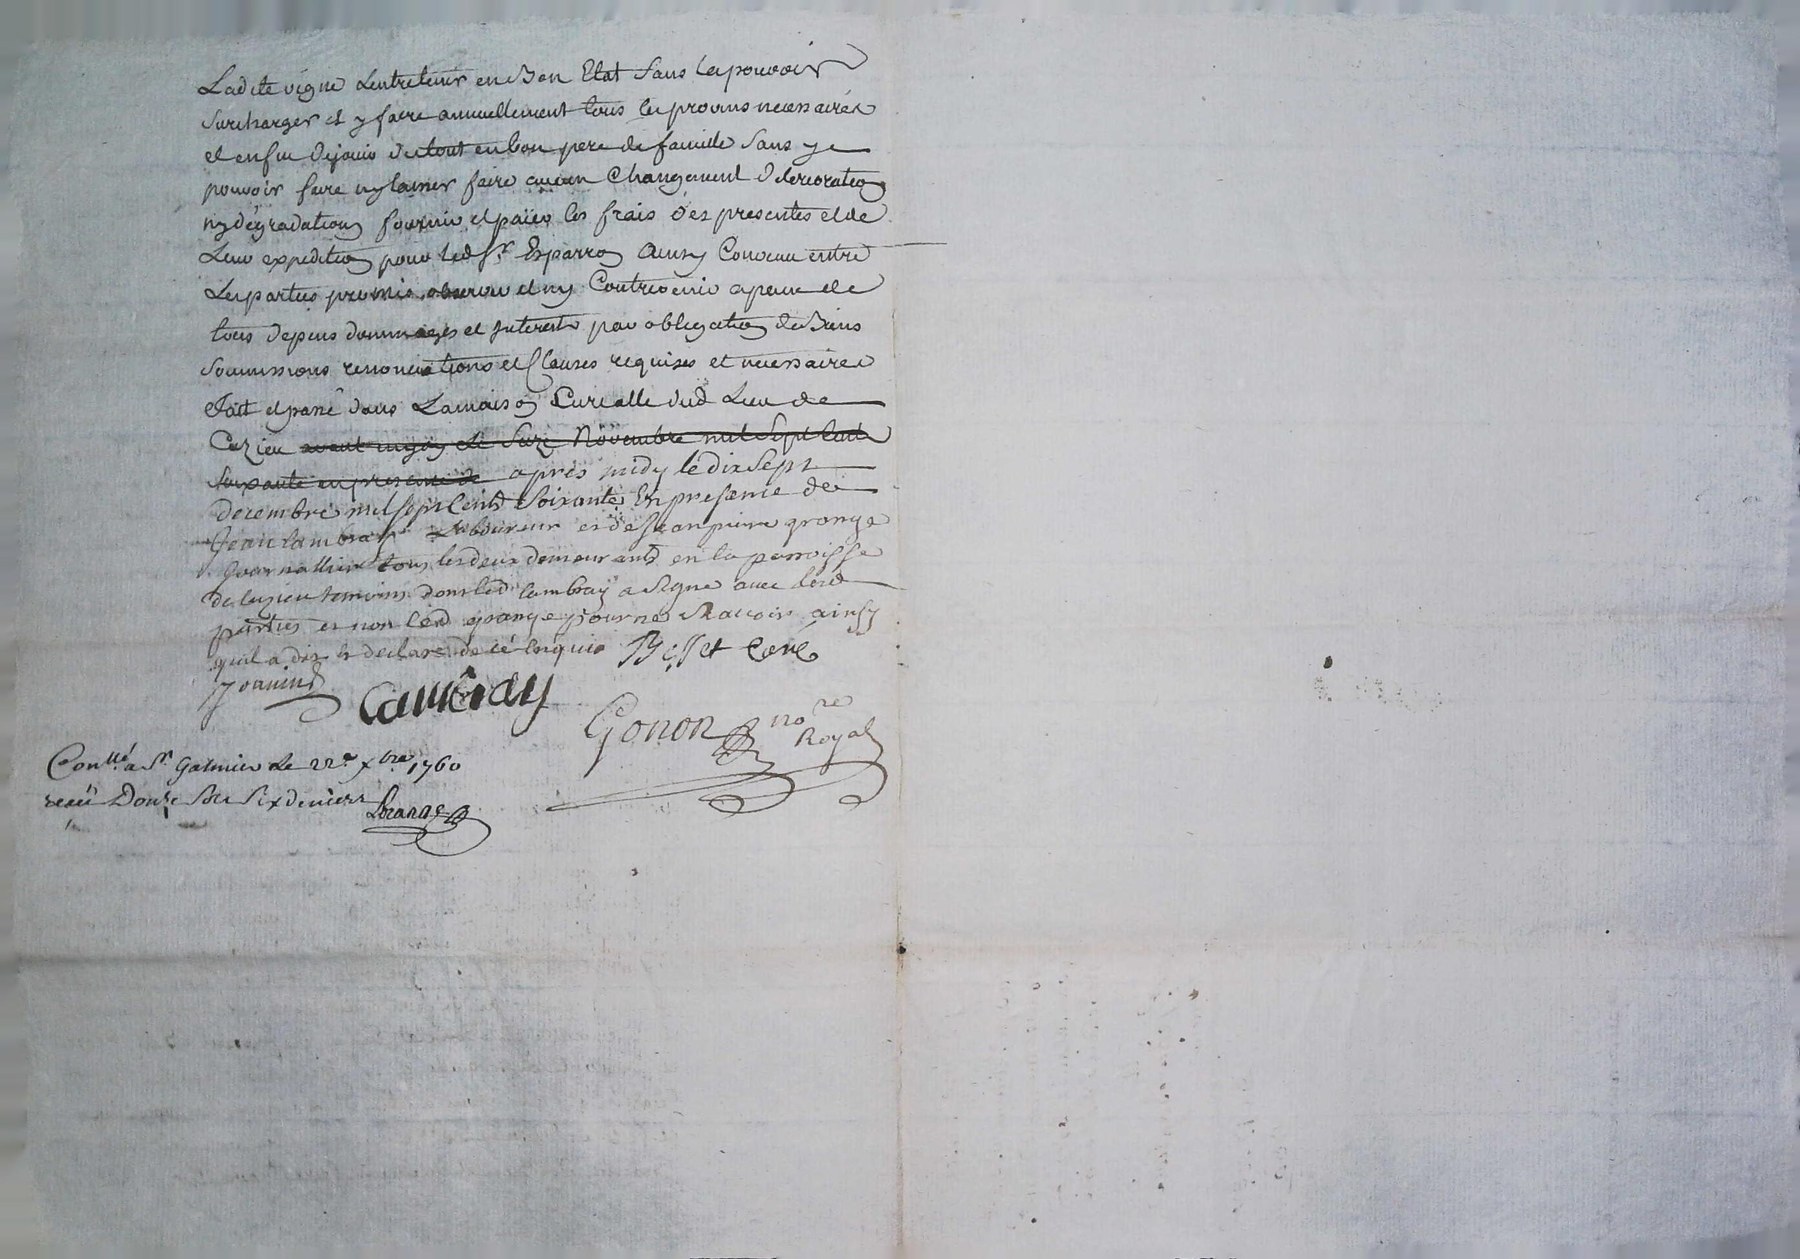 Ladite vigne Lentretenir en Bon Etat Sans la pouvoir
Surcharger et y faire annuellement tous les provins necessaires
et enfin Dejouir du tout en bon pere de famille Sans y
pouvoir faire ny laisser faire aucun Changement Deterioration
ny dégradation fournir et païer les frais des presentes et de
Leur expedition pour led Sr. Esparron Ainsy Convenu entre
Les parties promis observer et ny Contrevenir a peine de
tous depens dommages et Interests par obligation de Biens
Soumissions renonciations et Clauses requises et necessaires
Fait et passé dans Lamaison Curialle dud Lieu de
Cuzieu avant midy le Novembre mil Sept Cent
Soixante en presence de après midy le dix Sept
decembre mil sept Cent Soixante En presence de
Jean Cambray Laboureur et de Jean pierre grange
Journallier tous les deux demeurants en la parroisse
de Cuzieu temoins dont led Cambray a Signé avec lesd
parties et non led grange pour ne Scavoir ainsy
quil a dit et declaré de ce enquis Besset Curé
Joanin
Cambray
Gonon nore
Royal
Conllé a St. Galmier le 22e xbre 1760
receü Douze Sols Six deniers